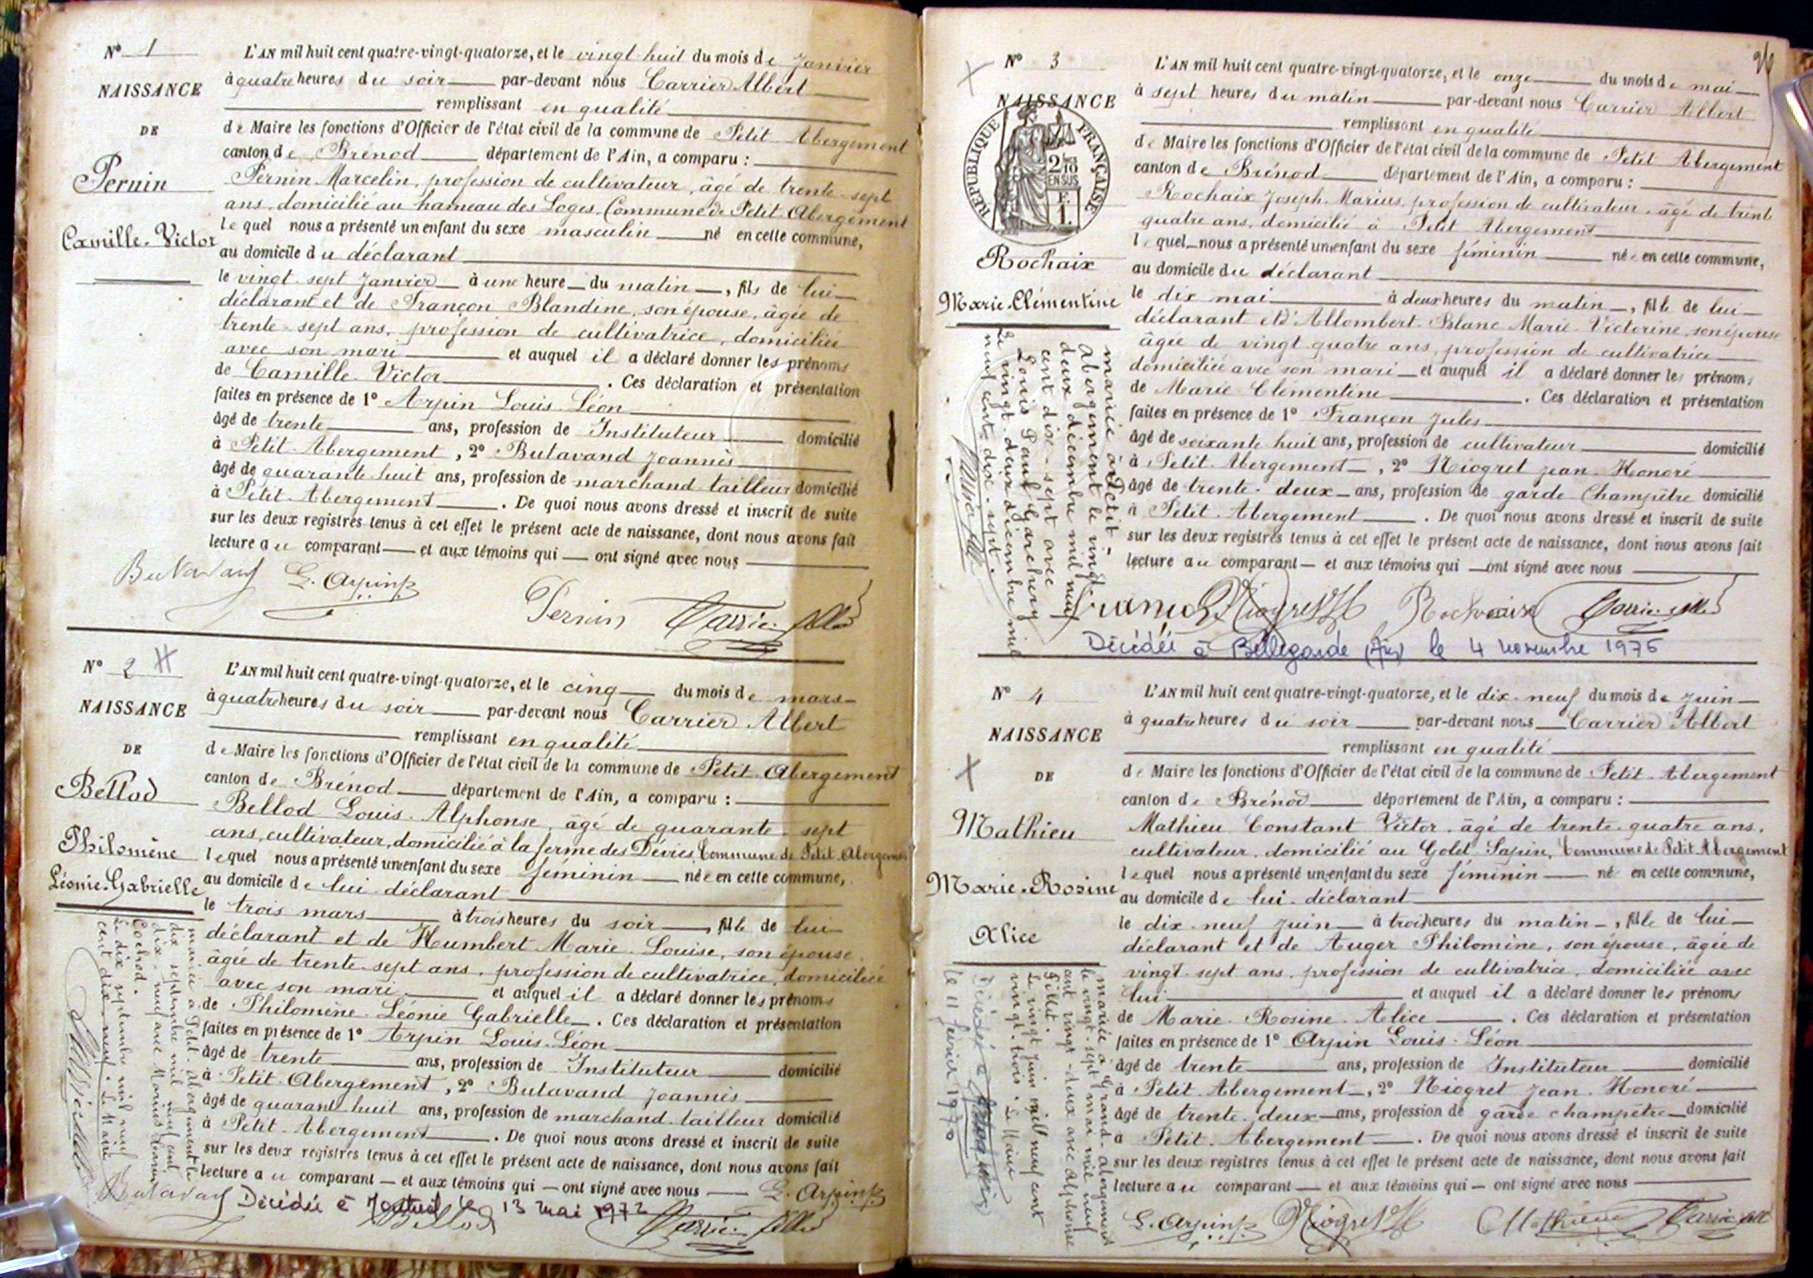 N° 1
NAISSANCE
DE
Pernin
Camille-Victor
L'AN mil huit cent quatre-vingt-quatorze, et le vingt-huit du mois de Janvier
à quatre heures du soir par-devant nous Carrier Albert
remplissant en qualité
de Maire les fonctions d'Officier de l'état civil de la commune de Petit Abergement
canton de Brénod département de l'Ain, a comparu :
Pernin Marcelin, profession de cultivateur, âgé de trente-sept
ans, domicilié au hameau des Loges, Commune de Petit-Abergement
lequel nous a présenté un enfant du sexe masculin né en cette commune,
au domicile du déclarant
le vingt-sept Janvier à une heure du matin, fils de lui
déclarant et de Françon Blandine, son épouse, âgée de
trente-sept ans, profession de cultivatrice, domiciliée
avec son mari et auquel il a déclaré donner les prénoms
de Camille Victor. Ces déclaration et présentation
faites en présence de 1° Arpin Louis Léon
âgé de trente ans, profession de Instituteur domicilié
à Petit-Abergement, 2° Butavand Joannès
âgé de quarante-huit ans, profession de marchand tailleur domicilié
à Petit-Abergement. De quoi nous avons dressé et inscrit de suite
sur les deux registres tenus à cet effet le présent acte de naissance, dont nous avons fait
lecture au comparant et aux témoins qui ont signé avec nous
Butavand L. Arpin
Pernin Carrier
N° 2
NAISSANCE
DE
Bellod
Philomène
Léonie-Gabrielle
mariée à Petit-Abergement le
dix septembre mil neuf cent
dix-neuf avec Marius
Cochod.
Le dix septembre mil neuf
cent dix-neuf. Le Maire
L'AN mil huit cent quatre-vingt-quatorze, et le cinq du mois de mars
à quatre heures du soir par-devant nous Carrier Albert
remplissant en qualité
de Maire les fonctions d'Officier de l'état civil de la commune de Petit-Abergement
canton de Brénod département de l'Ain, a comparu :
Bellod Louis-Alphonse, âgé de quarante-sept
ans, cultivateur, domicilié à la ferme des Dévies, Commune de Petit-Abergement
lequel nous a présenté un enfant du sexe féminin née en cette commune,
au domicile de lui déclarant
le trois mars à trois heures du soir, fille de lui
déclarant et de Humbert Marie-Louise, son épouse,
âgée de trente-sept ans, profession de cultivatrice, domiciliée
avec son mari et auquel il a déclaré donner les prénoms
de Philomène Léonie Gabrielle. Ces déclaration et présentation
faites en présence de 1° Arpin Louis-Léon
âgé de trente ans, profession de Instituteur domicilié
à Petit-Abergement, 2° Butavand Joannès
âgé de quarante-huit ans, profession de marchand tailleur domicilié
à Petit-Abergement. De quoi nous avons dressé et inscrit de suite
sur les deux registres tenus à cet effet le présent acte de naissance, dont nous avons fait
lecture au comparant et aux témoins qui ont signé avec nous L. Arpin
Butavand Décédée à le 13 mai 1972
Bellod Carrier
26
N° 3
NAISSANCE
RÉPUBLIQUE FRANÇAISE
2/10 EN SUS
F. 1.
Rochaix
Marie-Clémentine
mariée à Petit-
Abergement le vingt-
deux décembre mil neuf
cent dix-sept avec
Louis Paul Garchery
Le vingt-deux décembre mil
neuf cent dix-sept.
L'AN mil huit cent quatre-vingt-quatorze, et le onze du mois de mai
à sept heures du matin par-devant nous Carrier Albert
remplissant en qualité
de Maire les fonctions d'Officier de l'état civil de la commune de Petit Abergement
canton de Brénod département de l'Ain, a comparu :
Rochaix Joseph-Marius, profession de cultivateur, âgé de trente
quatre ans, domicilié à Petit Abergement
lequel nous a présenté un enfant du sexe féminin née en cette commune,
au domicile du déclarant
le dix mai à deux heures du matin, fille de lui
déclarant et d'Allombert-Blanc Marie-Victorine, son épouse
âgée de vingt-quatre ans, profession de cultivatrice
domiciliée avec son mari et auquel il a déclaré donner les prénoms
de Marie Clémentine. Ces déclaration et présentation
faites en présence de 1° Françon Jules
âgé de soixante-huit ans, profession de cultivateur domicilié
à Petit-Abergement, 2° Niogret Jean-Honoré
âgé de trente-deux ans, profession de garde Champêtre domicilié
à Petit-Abergement. De quoi nous avons dressé et inscrit de suite
sur les deux registres tenus à cet effet le présent acte de naissance, dont nous avons fait
lecture au comparant et aux témoins qui ont signé avec nous
Françon Niogret Rochaix Carrier
Décédée à Bellegarde (Ain) le 4 novembre 1976
N° 4
NAISSANCE
DE
Mathieu
Marie-Rosine
Alice
mariée à Grand-Abergement
le vingt-sept mai mil neuf
cent vingt-deux avec Alphonse
Pillet.
Le vingt Juin mil neuf cent
vingt-trois. Le Maire
Décédée à
le 11 février 1970
L'AN mil huit cent quatre-vingt-quatorze, et le dix-neuf du mois de Juin
à quatre heures du soir par-devant nous Carrier Albert
remplissant en qualité
de Maire les fonctions d'Officier de l'état civil de la commune de Petit-Abergement
canton de Brénod département de l'Ain, a comparu :
Mathieu Constant Victor, âgé de trente-quatre ans,
cultivateur, domicilié au Golet-Sapin, Commune de Petit-Abergement
lequel nous a présenté un enfant du sexe féminin né en cette commune,
au domicile de lui déclarant
le dix-neuf Juin à trois heures du matin, fille de lui
déclarant et de Auger Philomène, son épouse, âgée de
vingt-sept ans, profession de cultivatrice, domiciliée avec
lui et auquel il a déclaré donner les prénoms
de Marie-Rosine-Alice. Ces déclaration et présentation
faites en présence de 1° Arpin Louis-Léon
âgé de trente ans, profession de Instituteur domicilié
à Petit-Abergement, 2° Niogret Jean-Honoré
âgé de trente-deux ans, profession de garde champêtre domicilié
à Petit-Abergement. De quoi nous avons dressé et inscrit de suite
sur les deux registres tenus à cet effet le présent acte de naissance, dont nous avons fait
lecture au comparant et aux témoins qui ont signé avec nous
L. Arpin Niogret Mathieu Carrier